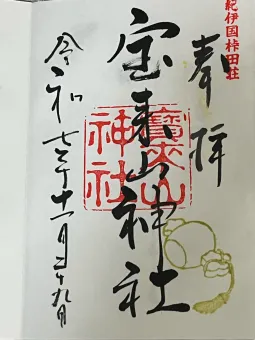 紀伊国桛田荘
奉拝
宝来山神社
寶来山神社
令和七年十一月二十九日